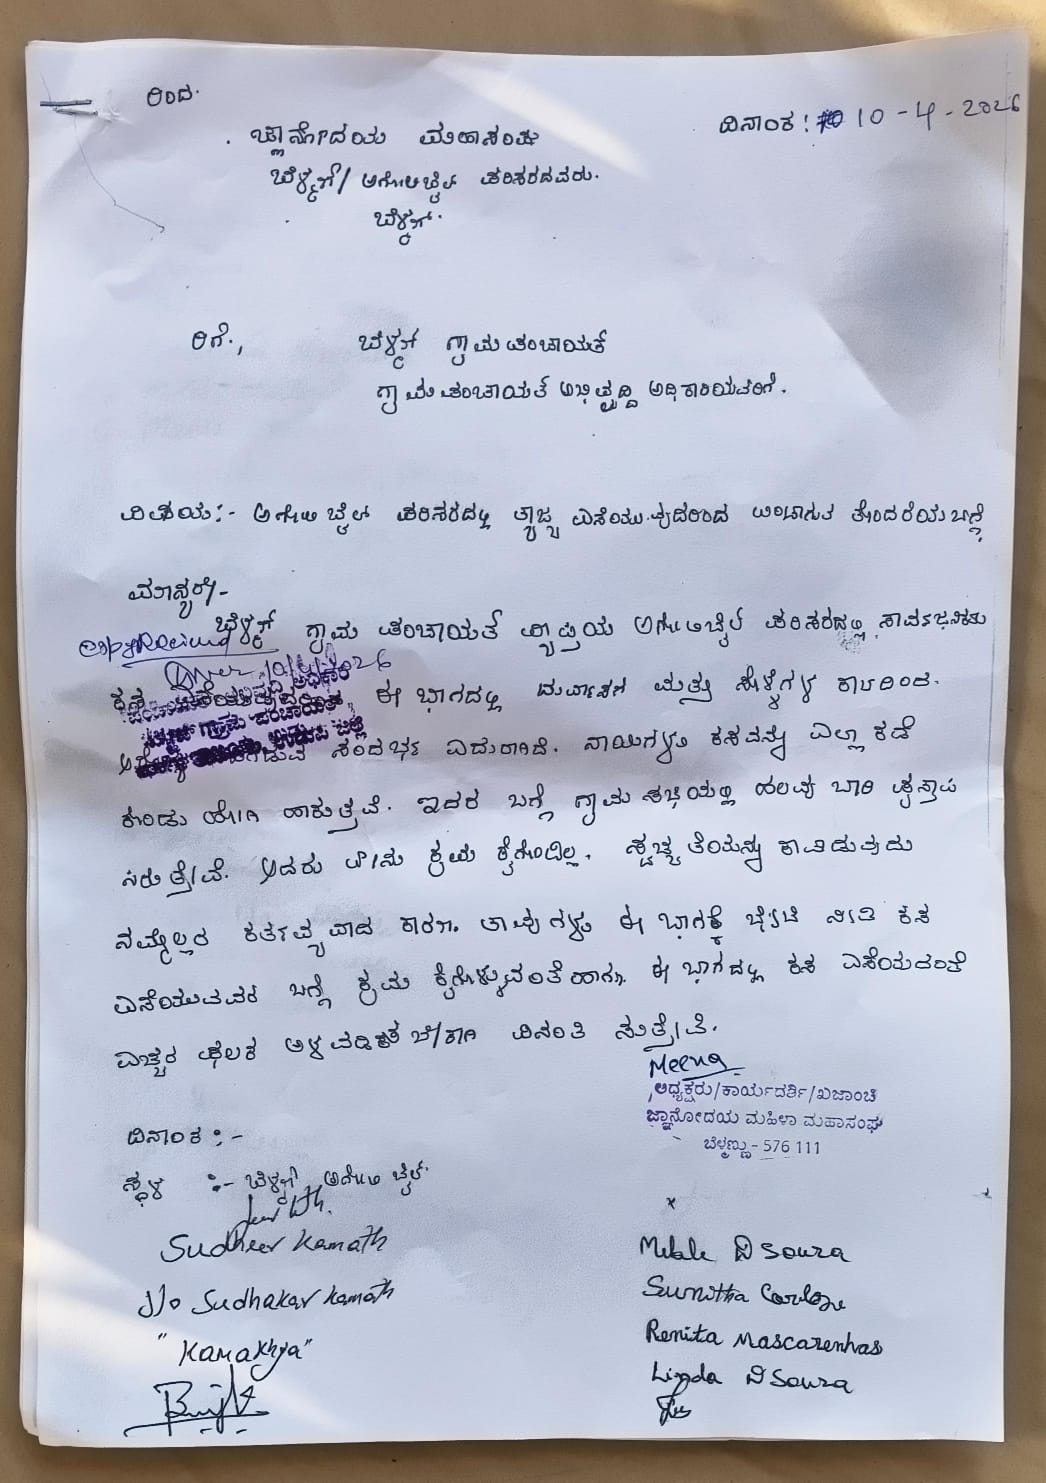 ರಿಂದ.
ದಿನಾಂಕ: 10-4-2026
ಜ್ಞಾನೋದಯ ಮಹಾಸಂಘ
ಬೆಳ್ಮಣ್/ ಅಗೋಳಿಬೈಲ್ ಪರಿಸರದವರು.
ಬೆಳ್ಮಣ್.
ರಿಗೆ., ಬೆಳ್ಮಣ್ ಗ್ರಾಮ ಪಂಚಾಯತ್
ಗ್ರಾಮ ಪಂಚಾಯತ್ ಅಭಿವೃದ್ದಿ ಅಧಿಕಾರಿಯವರಿಗೆ.
ವಿಷಯ:- ಅಗೋಳಿಬೈಲ್ ಪರಿಸರದಲ್ಲಿ ತ್ಯಾಜ್ಯ ಎಸೆಯುವುದರಿಂದ ಉಂಟಾಗುವ ತೊಂದರೆಯ ಬಗ್ಗೆ
ಮಾನ್ಯರೇ,-
ಬೆಳ್ಮಣ್ ಗ್ರಾಮ ಪಂಚಾಯತ್ ವ್ಯಾಪ್ತಿಯ ಅಗೋಳಿಬೈಲ್ ಪರಿಸರದಲ್ಲಿ ಸಾರ್ವಜನಿಕರು
10/4/2026
ಕಸ ಈ ಭಾಗದಲ್ಲಿ ದುರ್ವಾಸನೆ ಮತ್ತು ಸೊಳ್ಳೆಗಳ ಕಾಟದಿಂದ
ಗ್ರಾಮ ಪಂಚಾಯತ್
ಸಂದರ್ಭ ಎದುರಾಗಿದೆ. ನಾಯಿಗಳು ಕಸವನ್ನು ಎಲ್ಲಾ ಕಡೆ
ಕೊಂಡು ಹೋಗಿ ಹಾಕುತ್ತವೆ. ಇದರ ಬಗ್ಗೆ ಗ್ರಾಮ ಸಭೆಯಲ್ಲಿ ಹಲವು ಬಾರಿ ಪ್ರಸ್ತಾಪ
ಆದರು ಏನು ಕ್ರಮ ಕೈಗೊಂಡಿಲ್ಲ. ಸ್ವಚ್ಚತೆಯನ್ನು ಕಾಪಾಡುವುದು
ನಮ್ಮೆಲ್ಲರ ಕರ್ತವ್ಯವಾದ ಕಾರಣ ತಾವುಗಳು ಈ ಭಾಗಕ್ಕೆ ಭೇಟಿ ನೀಡಿ ಕಸ
ಎಸೆಯುವವರ ಬಗ್ಗೆ ಕ್ರಮ ಕೈಗೊಳ್ಳುವಂತೆ ಹಾಗೂ ಈ ಭಾಗದಲ್ಲಿ ಕಸ ಎಸೆಯದಂತೆ
ಎಚ್ಚರ ಫಲಕ ಅಳವಡಿಕೆ ವಿನಂತಿ
Meena
ಅಧ್ಯಕ್ಷರು/ಕಾರ್ಯದರ್ಶಿ/ಖಜಾಂಚಿ
ಜ್ಞಾನೋದಯ ಮಹಿಳಾ ಮಹಾಸಂಘ
ಬೆಳ್ಮಣ್ಣು - 576 111
ದಿನಾಂಕ :-
ಸ್ಥಳ :- ಬೆಳ್ಮಣ್ ಅಗೋಳಿ ಬೈಲ್.
Sudheer Kamath
S/o Sudhakar Kamath
"Kamakhya"
D Souza
Sunitha
Renita Mascarenhas
Linda D Souza